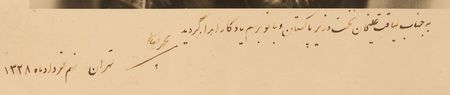 به جناب لیاقت علیخان نخست وزیر پاکستان و بانو برسم یادگار اهدا گردید
تهران خرداد ماه ۱۳۲۸